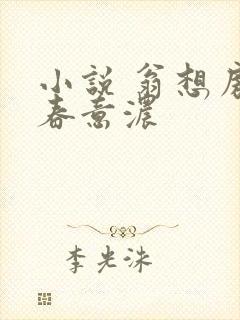 小說 翁想房
春意濃
李光洙